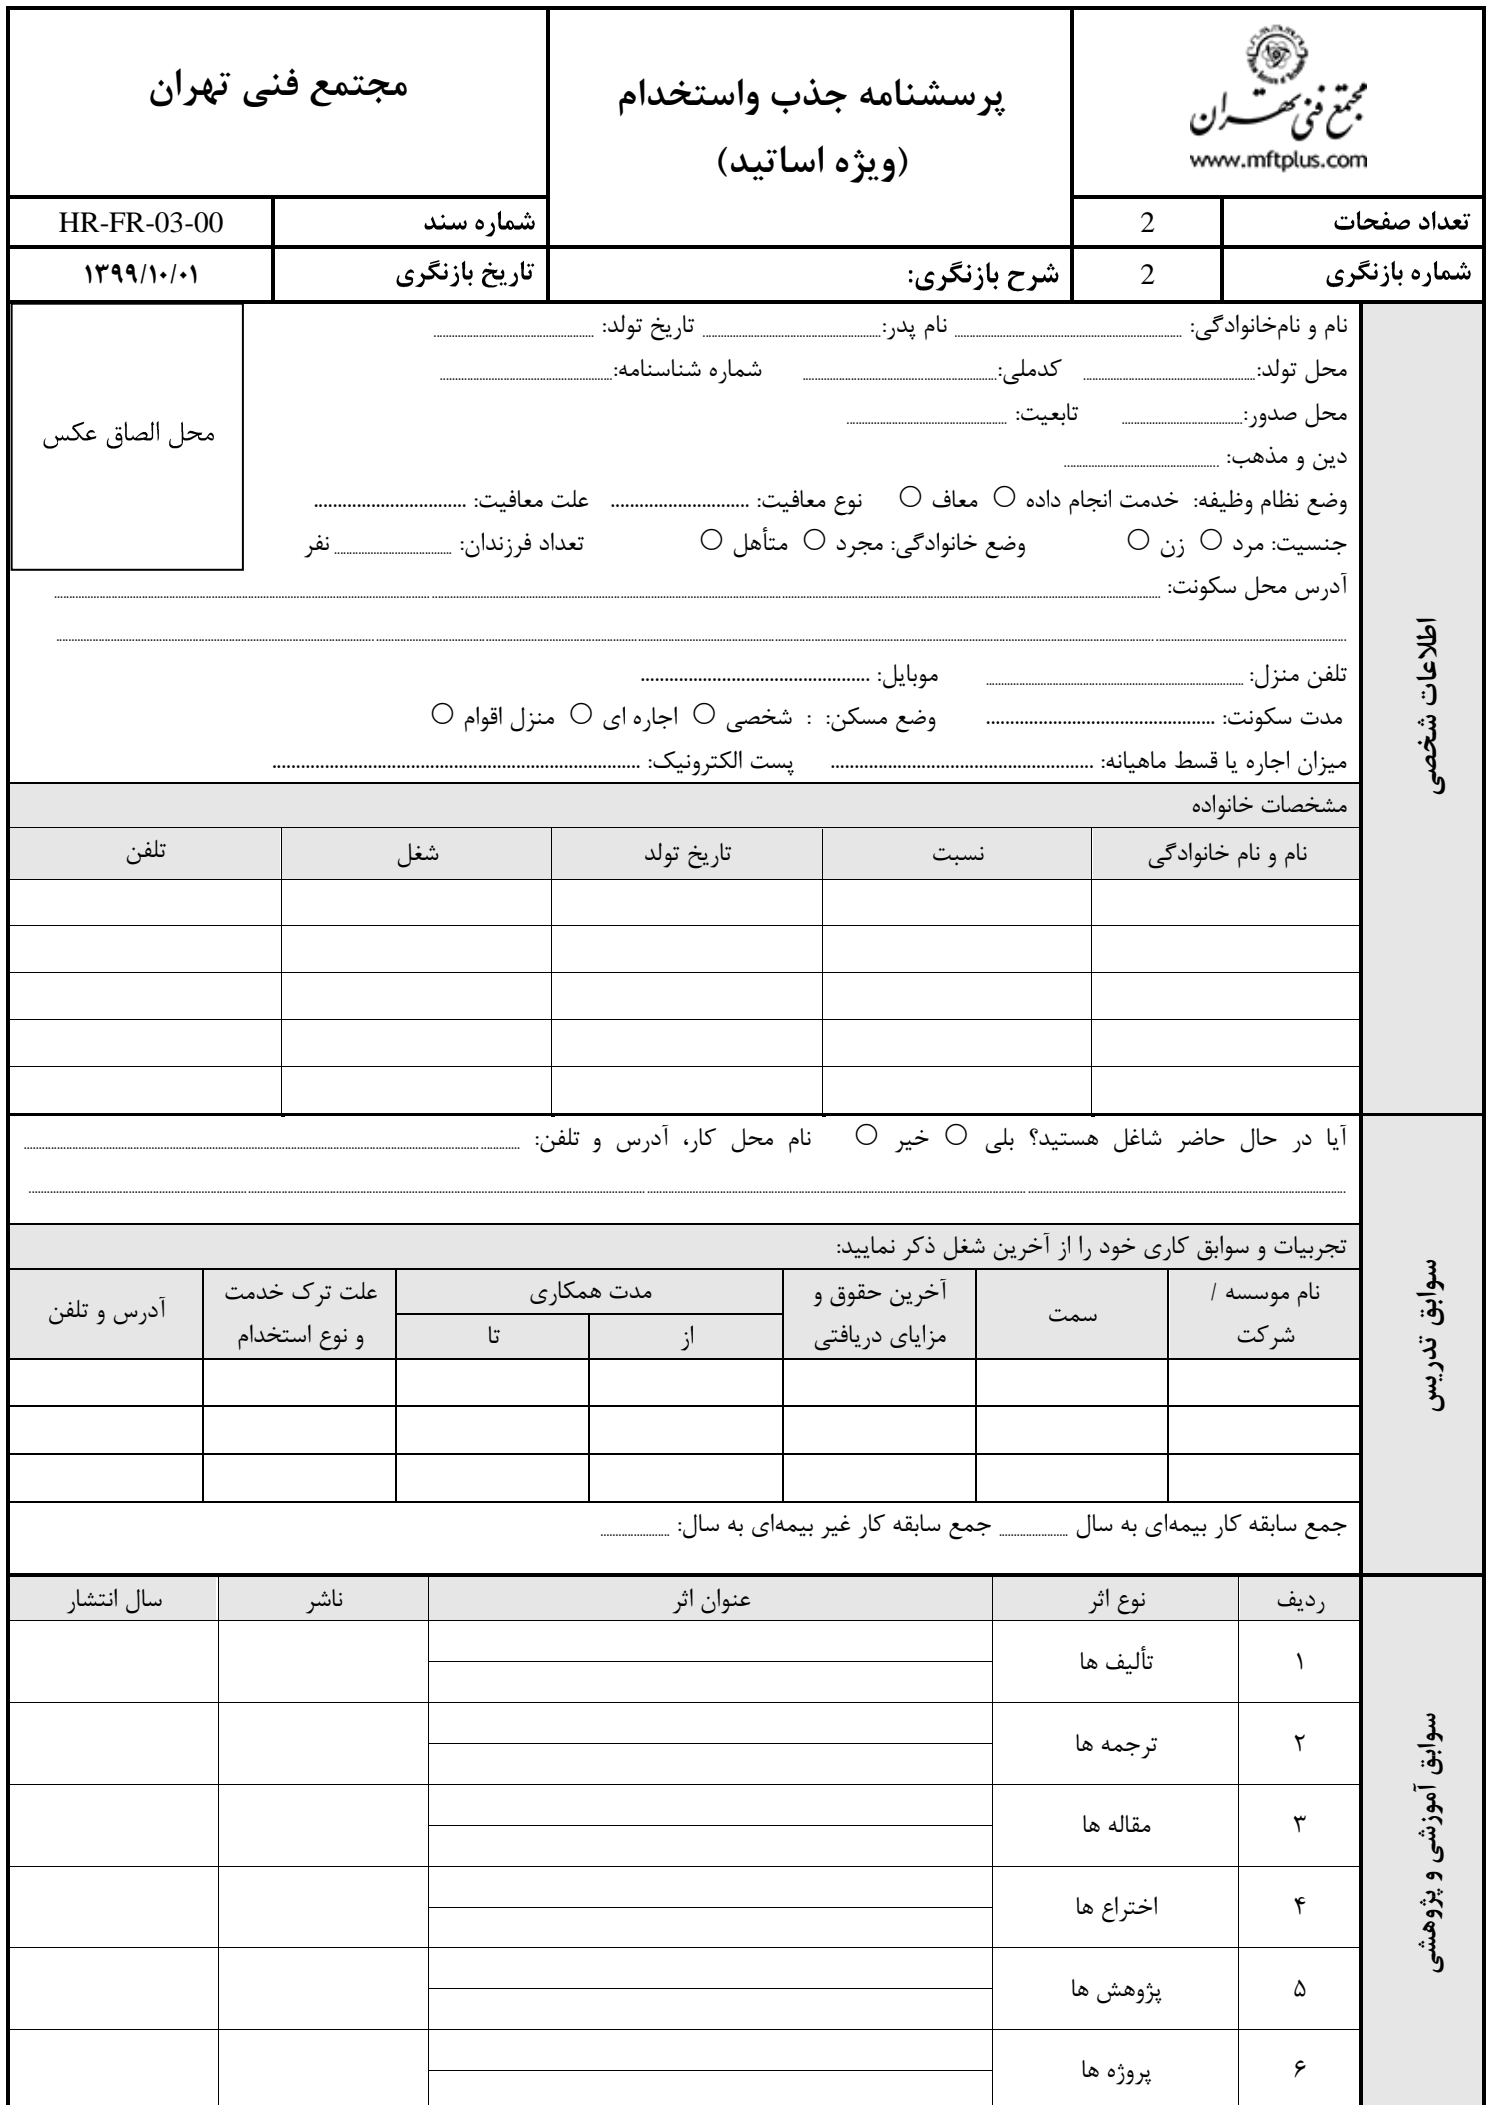 مجتمع فنی تهران
www.mftplus.com
پرسشنامه جذب واستخدام
(ویژه اساتید)
مجتمع فنی تهران
تعداد صفحات 2 شماره سند HR-FR-03-00
شماره بازنگری 2 شرح بازنگری: تاریخ بازنگری ۱۳۹۹/۱۰/۰۱
اطلاعات شخصی
نام و نام‌خانوادگی: نام پدر: تاریخ تولد:
محل تولد: کدملی: شماره شناسنامه:
محل صدور: تابعیت:
دین و مذهب:
محل الصاق عکس
وضع نظام وظیفه: خدمت انجام داده ○ معاف ○ نوع معافیت: علت معافیت:
جنسیت: مرد ○ زن ○ وضع خانوادگی: مجرد ○ متأهل ○ تعداد فرزندان: نفر
آدرس محل سکونت:
تلفن منزل: موبایل:
مدت سکونت: وضع مسکن: : شخصی ○ اجاره ای ○ منزل اقوام ○
میزان اجاره یا قسط ماهیانه: پست الکترونیک:
مشخصات خانواده
نام و نام خانوادگی نسبت تاریخ تولد شغل تلفن
سوابق تدریس
آیا در حال حاضر شاغل هستید؟ بلی ○ خیر ○ نام محل کار، آدرس و تلفن:
تجربیات و سوابق کاری خود را از آخرین شغل ذکر نمایید:
نام موسسه / شرکت سمت آخرین حقوق و مزایای دریافتی مدت همکاری علت ترک خدمت و نوع استخدام آدرس و تلفن
از تا
جمع سابقه کار بیمه‌ای به سال جمع سابقه کار غیر بیمه‌ای به سال:
سوابق آموزشی و پژوهشی
ردیف نوع اثر عنوان اثر ناشر سال انتشار
۱ تألیف ها
۲ ترجمه ها
۳ مقاله ها
۴ اختراع ها
۵ پژوهش ها
۶ پروژه ها